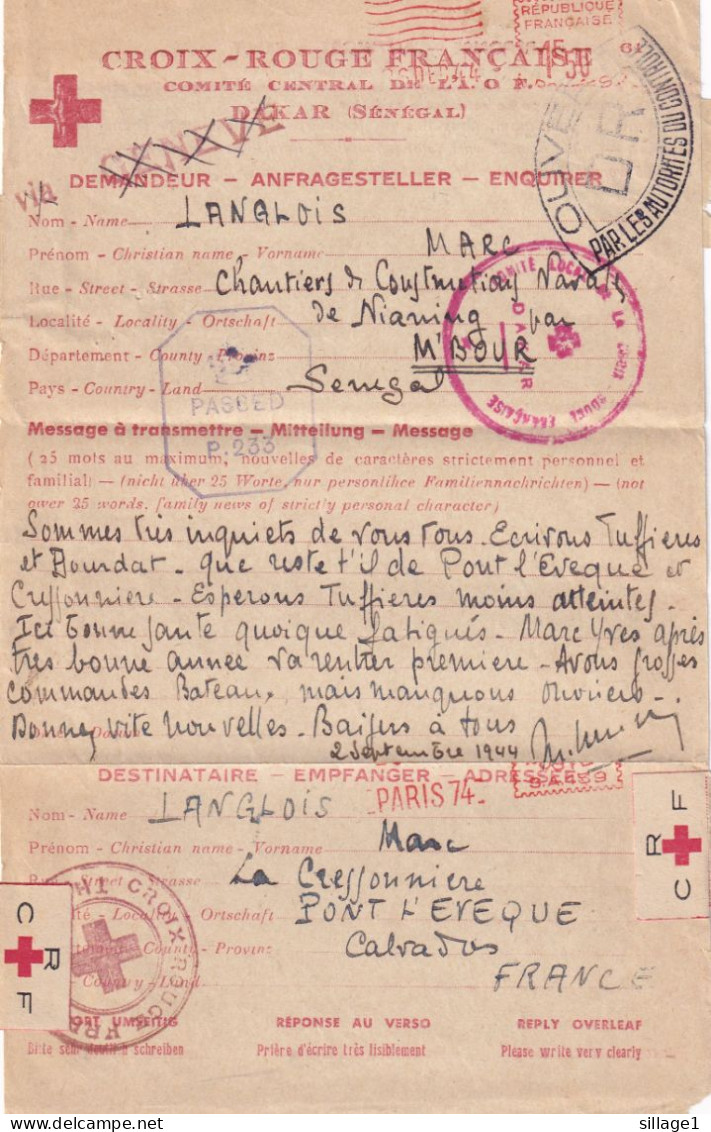 RÉPUBLIQUE
FRANÇAISE
CROIX-ROUGE FRANÇAISE
COMITÉ CENTRAL DE L'A. O F.
DAKAR (SÉNÉGAL)
DEC 44
OUVE
DR
PAR LES AUTORITÉS DU CONTROLE
via GENEVE
DEMANDEUR - ANFRAGESTELLER - ENQUIRER
Nom - Name LANGLOIS
Prénom - Christian name - Vorname MARC
Rue - Street - Strasse Chantiers de Constructions Navales
Localité - Locality - Ortschaft de Nianing par
Département - County - Provinz M'BOUR
Pays - Country - Land Senegal
COMITÉ LOCAL DE LA CROIX - ROUGE FRANÇAISE
DAKAR
PASSED
P. 233
Message à transmettre - Mitteilung - Message
(25 mots au maximum, nouvelles de caractères strictement personnel et
familial) — (nicht über 25 Worte, nur personlihce Familiennachrichten) — (not
over 25 words, family news of strictly personal character)
Sommes très inquiets de vous tous. Ecrivons Tuffieres
et Bourdat - que reste t'il de Pont l'Eveque et
Cressonniere - Esperons Tuffieres moins atteintes -
Ici bonne santé quoique fatigués - Marc Yves après
tres bonne annee va rentrer premiere - Avons grosses
commandes Bateaux, mais manquons ouvriers -.
Donnez vite nouvelles - Baisers à tous
2 Septembre 1944
DESTINATAIRE - EMPFANGER - ADRESSEE
PARIS 74
Nom - Name LANGLOIS
Prénom - Christian name - Vorname Marc
Street Strasse La Cressonniere
Locality - Ortschaft PONT L'EVEQUE
County - Provinz Calvados
Land FRANCE
CROIX ROUGE
C R F
C R F
UMSEITIG RÉPONSE AU VERSO REPLY OVERLEAF
Bitte sehr deutlich schreiben Prière d'écrire très lisiblement Please write very clearly
sillage1